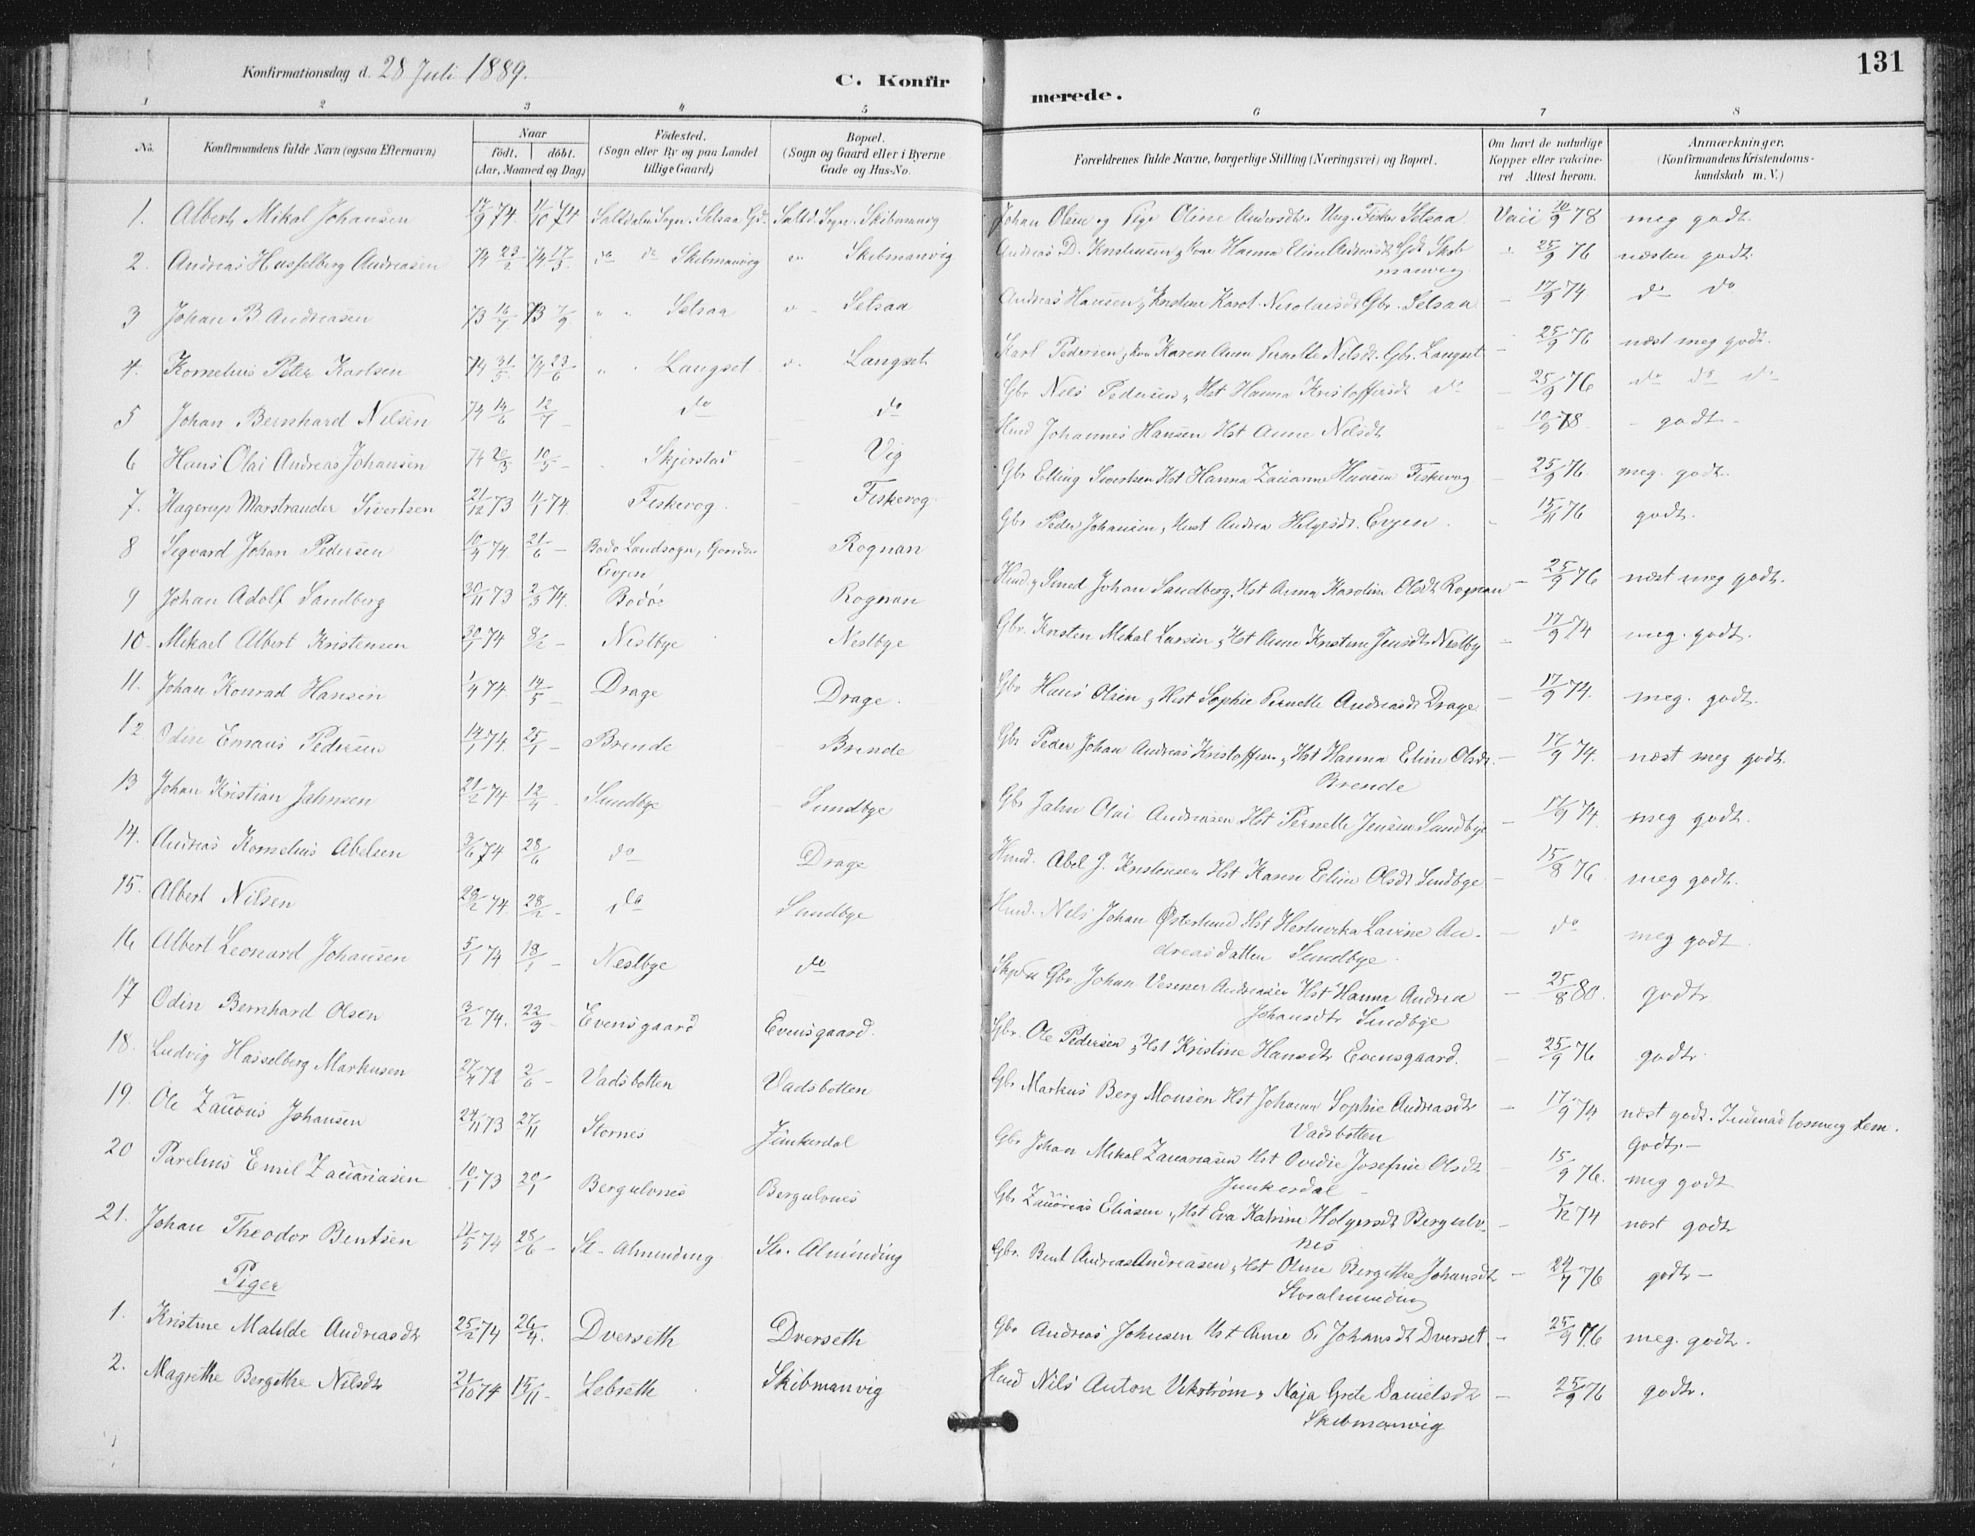 Konfirmationsdag d. 28 Juli 1889.
C. Konfirmerede.
131
1 2 3 4 5 6 7 8
No.
Konfirmandens fulde Navn (ogsaa Efternavn)
Naar
födt. döbt.
(Aar, Maaned og Dag)
Födested.
(Sogn eller By og paa Landet
tillige Gaard)
Bopæl.
(Sogn og Gaard eller i Byerne
Gade og Hus-No.
Forældrenes fulde Navne, borgerlige Stilling (Næringsvei) og Bopæl.
Om havt de naturlige
Kopper eller vakcine-
ret Attest herom.
Anmærkninger.
(Konfirmandens Kristendoms-
kundskab m. V.)
1. Albert Mikal Johansen Saltdalen Sogn. Setsaa Saltd. Sogn. Skibmanvig Johan Olsen og Pige Oline Andersdt. Ung. Fisker Setsaa 78 meg godt.
2. Andreas Hasselberg Andreasen 74 Skibmanvig Skibmanvig Andreas D. Kristensen Hanna Eline Andreasdt Skib
manvig 25/9 76 næsten godt.
3 Johan B Andreasen 73 Setsaa Setsaa Andreas Hansen Kristine Karol. Nicolaisdt Gbr. Setsaa 17/9 74 do do
4. Kornelius Peter Karlsen 74 31/5 74 23/6 Langset Langset Karl Pedersen Karen Anna Pernelle Nilsdt. Gbr. Langset 25/9 76 næst meg godt.
5 Johan Bernhard Nilsen 74 14/6 12/7 do do Gbr Nels Pedersen Hst Hanna Kristoffersdt do 25/9 76 do do do
6 Hans Olai Andreas Johansen 74 10/5 Skjerstad Vig Hmd Johannes Hansen Hst Anne Nelsdt 10/9 78 godt
7. Hagerup Marstrander Sivertsen 21/12 73 74 Fiskevog Fiskevog Gbr Elling Sivertsen Hst Hanna Zacianna Hansen Fiskevog 25/9 76. meg. godt.
8 Segvard Johan Pedersen 74 21/6 - Bodo Landsogn,
Evjen Rognan Gbr Peder Johansen, Hust Andrea Helgesdt. Evjen. 15/11 76 godt.
9 Johan Adolf Sandberg 30/11 73 2/3 74. Bodoe Rognan Hmd. Smed Johan Sandberg. Hst Anna Karoline Olsdt Rognan 25/9 76 næst meg godt.
10. Mikael Albert Kristensen 74 8/2 - Nestbye Nestbye Gbr. Kristen Mikal Larsen, Hst Anne Kristine Jensdt Nestby 17/9 74 meg. godt.
11. Johan Konrad Hansen 1/4 74 14/5 - Drage Drage. Gbr Hans Olsen, Hst Sophie Pernelle Andreasdt Drage 17/9 74. meg. godt.
12 Odin Emaus Pedersen 14/1 74 25/1 - Brende Brende Gbr Peder Johan Andreas Kristoffersen, Hst Hanna Eline Olsdt.
Brende 17/9 74. næst meg godt.
13 Johan Kristian Jahnsen 21/2 74 12/4 Sundbye Sundbye Gbr Jahn Olai Andreasen Hst Pernelle Jensen Sundbye 17/9 74. meg godt.
14. Andreas Kornelius Abelsen 3/6 74 28/6 do Drage Hmd. Abel J. Kristensen Hst Karen Eline Olsdt Sundbye 15/8 76 meg godt.
15. Albert Nilsen 74. 28/2 - do Sundbye Hmd. Nels Johan Østerlund Hst Lavine An-
dreasdatter Sundbye. do meg godt.
16 Albert Leonard Johansen 5/1 74 18/1 - Nestbye do Gbr. Johan Vesmer Andreasen Hst Hanna Andrea
Johansdt. Sundbye 25/8 80. godt.
17 Odin Bernhard Olsen 3/2 74. 22/3 - Evensgaard Evensgaard. Gbr. Ole Pedersen, Hst Kristine Hansdt. Evensgaard. 25/9 76 godt.
18. Ludvig Hasselberg Markusen 27/4 72 2/6 - Vadsbotten Vadsbotten Gbr Markus Berg Monsen Hst Johanna Sophie Andreasdt
Vadsbotten 17/9 74 næst godt.
godt. -
19. Ole Zacrous Johansen 73 27/11 Stornes Junkerdal Gbr Johan Mikal Zacariasen Hst Ovidie Josefine Olsdt
Junkerdal - 15/9 76. meg godt
20 Parelius Emil Zacariasen 10/1 73 20/1 Bergulvnes Bergulvnes Gbr Zacarias Eliasen, Hst Eva Katrine Holgersdt Bergulv-
nes 7/12 74 næst godt
21. Johan Theodor Bentsen 74 28/6 - St. Almending Str. Almending Gbr. Bent Andreas Andreasen, Hst Oline Bergithe Johansdt
Storalmending 76 godt -
Piger
1. Kristine Matilde Andreasdt 25/2 74 26/4. Dverseth Dverseth Gbr Andreas Johnsen Hst Anne P. Johansdt Dverset. 25/9 76 meg. godt.
2. Magrethe Bergithe Nilsdt 21/10 74 15/11 - Lebseth Skibmanvig Hmd Nils Anton Vikstrøm, Maja Grete Danielsdt
Skibmanvig 25/9 76 godt.